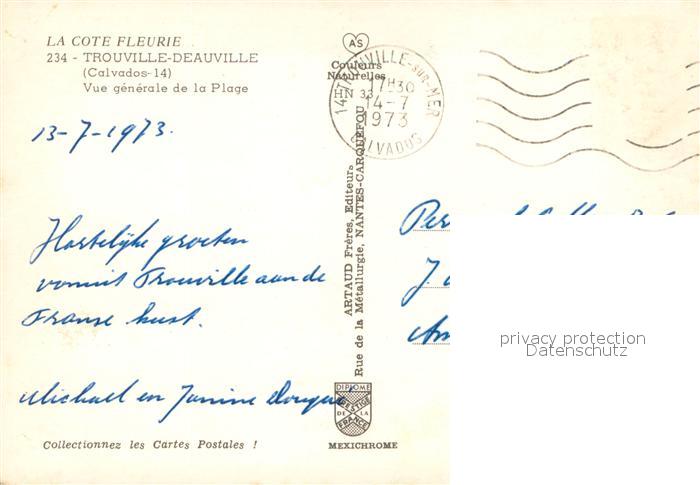 LA COTE FLEURIE
234 - TROUVILLE-DEAUVILLE
(Calvados-14)
Vue générale de la Plage
AS
Couleurs
Naturelles
HN 33
14-TROUVILLE-SUR-MER
17H30
14-7
1973
CALVADOS
13-7-1973.
Hartelijke groeten
vanuit Trouville aan de
Franse kust.
Michael en Janine
ARTAUD Frères, Editeurs
Rue de la Métallurgie, NANTES-CARQUEFOU
J.
Am
privacy protection
Datenschutz
DIPLOME
PRESTIGE
DE LA
FRANCE
MEXICHROME
Collectionnez les Cartes Postales !